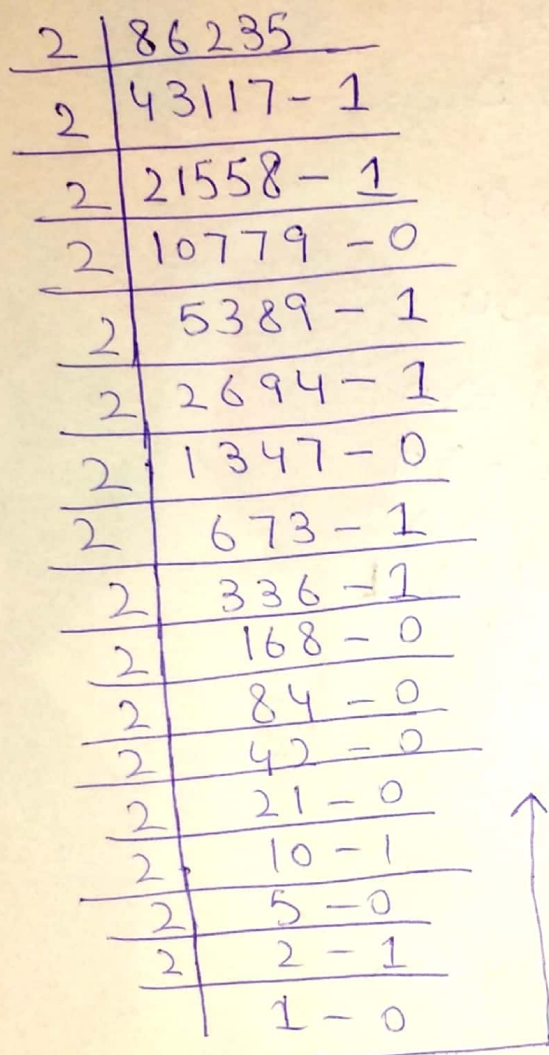 2 | 86235
2 | 43117 - 1
2 | 21558 - 1
2 | 10779 - 0
2 | 5389 - 1
2 | 2694 - 1
2 | 1347 - 0
2 | 673 - 1
2 | 336 - 1
2 | 168 - 0
2 | 84 - 0
2 | 42 - 0
2 | 21 - 0
2 | 10 - 1
2 | 5 - 0
2 | 2 - 1
1 - 0